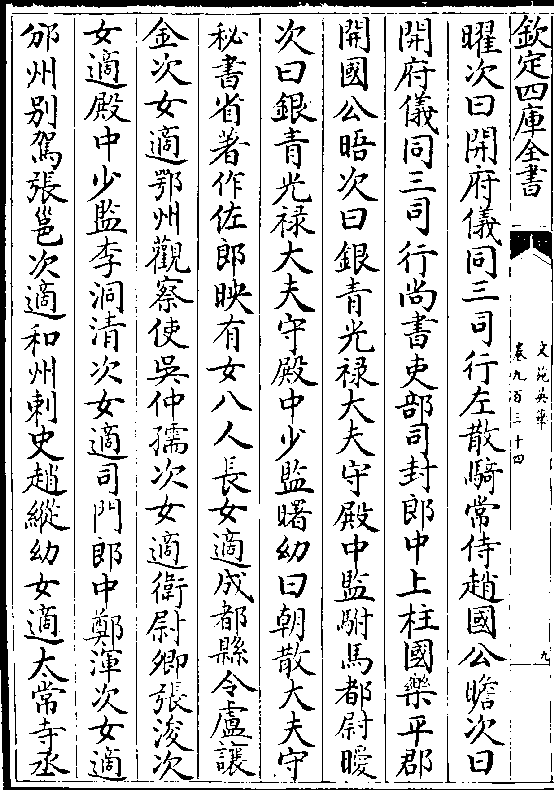 欽定四庫全書
文苑英華
卷九百三十四
九
曜次曰開府儀同三司行左散騎常侍趙國公瞻次曰
開府儀同三司行尚書吏部司封郎中上柱國樂平郡
開國公晤次曰銀青光祿大夫守殿中監駙馬都尉曖
次曰銀青光祿大夫守殿中少監曙幼曰朝散大夫守
秘書省著作佐郎映有女八人長女適成都縣令盧讓
金次女適鄂州觀察使吳仲孺次女適衛尉卿張浚次
女適殿中少監李洞清次女適司門郎中鄭渾次女適
邠州别駕張邕次適和州刺史趙縱幼女適太常寺丞